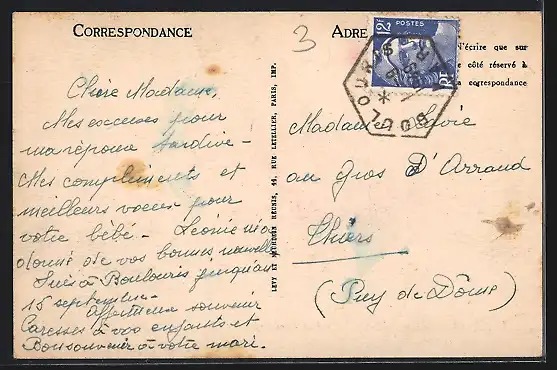 CORRESPONDANCE
Chère Madame,
Mes excuses pour
ma réponse tardive -
Mes compliments et
meilleurs voeux pour
votre bébé. Léonie m'a
donné de vos bonnes nouvelles
Suis à Boulouris jusqu'au
15 septembre.
Affectueux souvenir
Caresses à vos enfants et
Bon souvenir à votre mari.
LEVY ET NEURDEIN REUNIS, 44, RUE LETELLIER, PARIS, IMP.
3
ADRE
12F POSTES
BOULOURIS
N'écrire que sur
le côté réservé à
la correspondance
Madame
au Gros D'Arraud
Thiers
(Puy de Dôme)